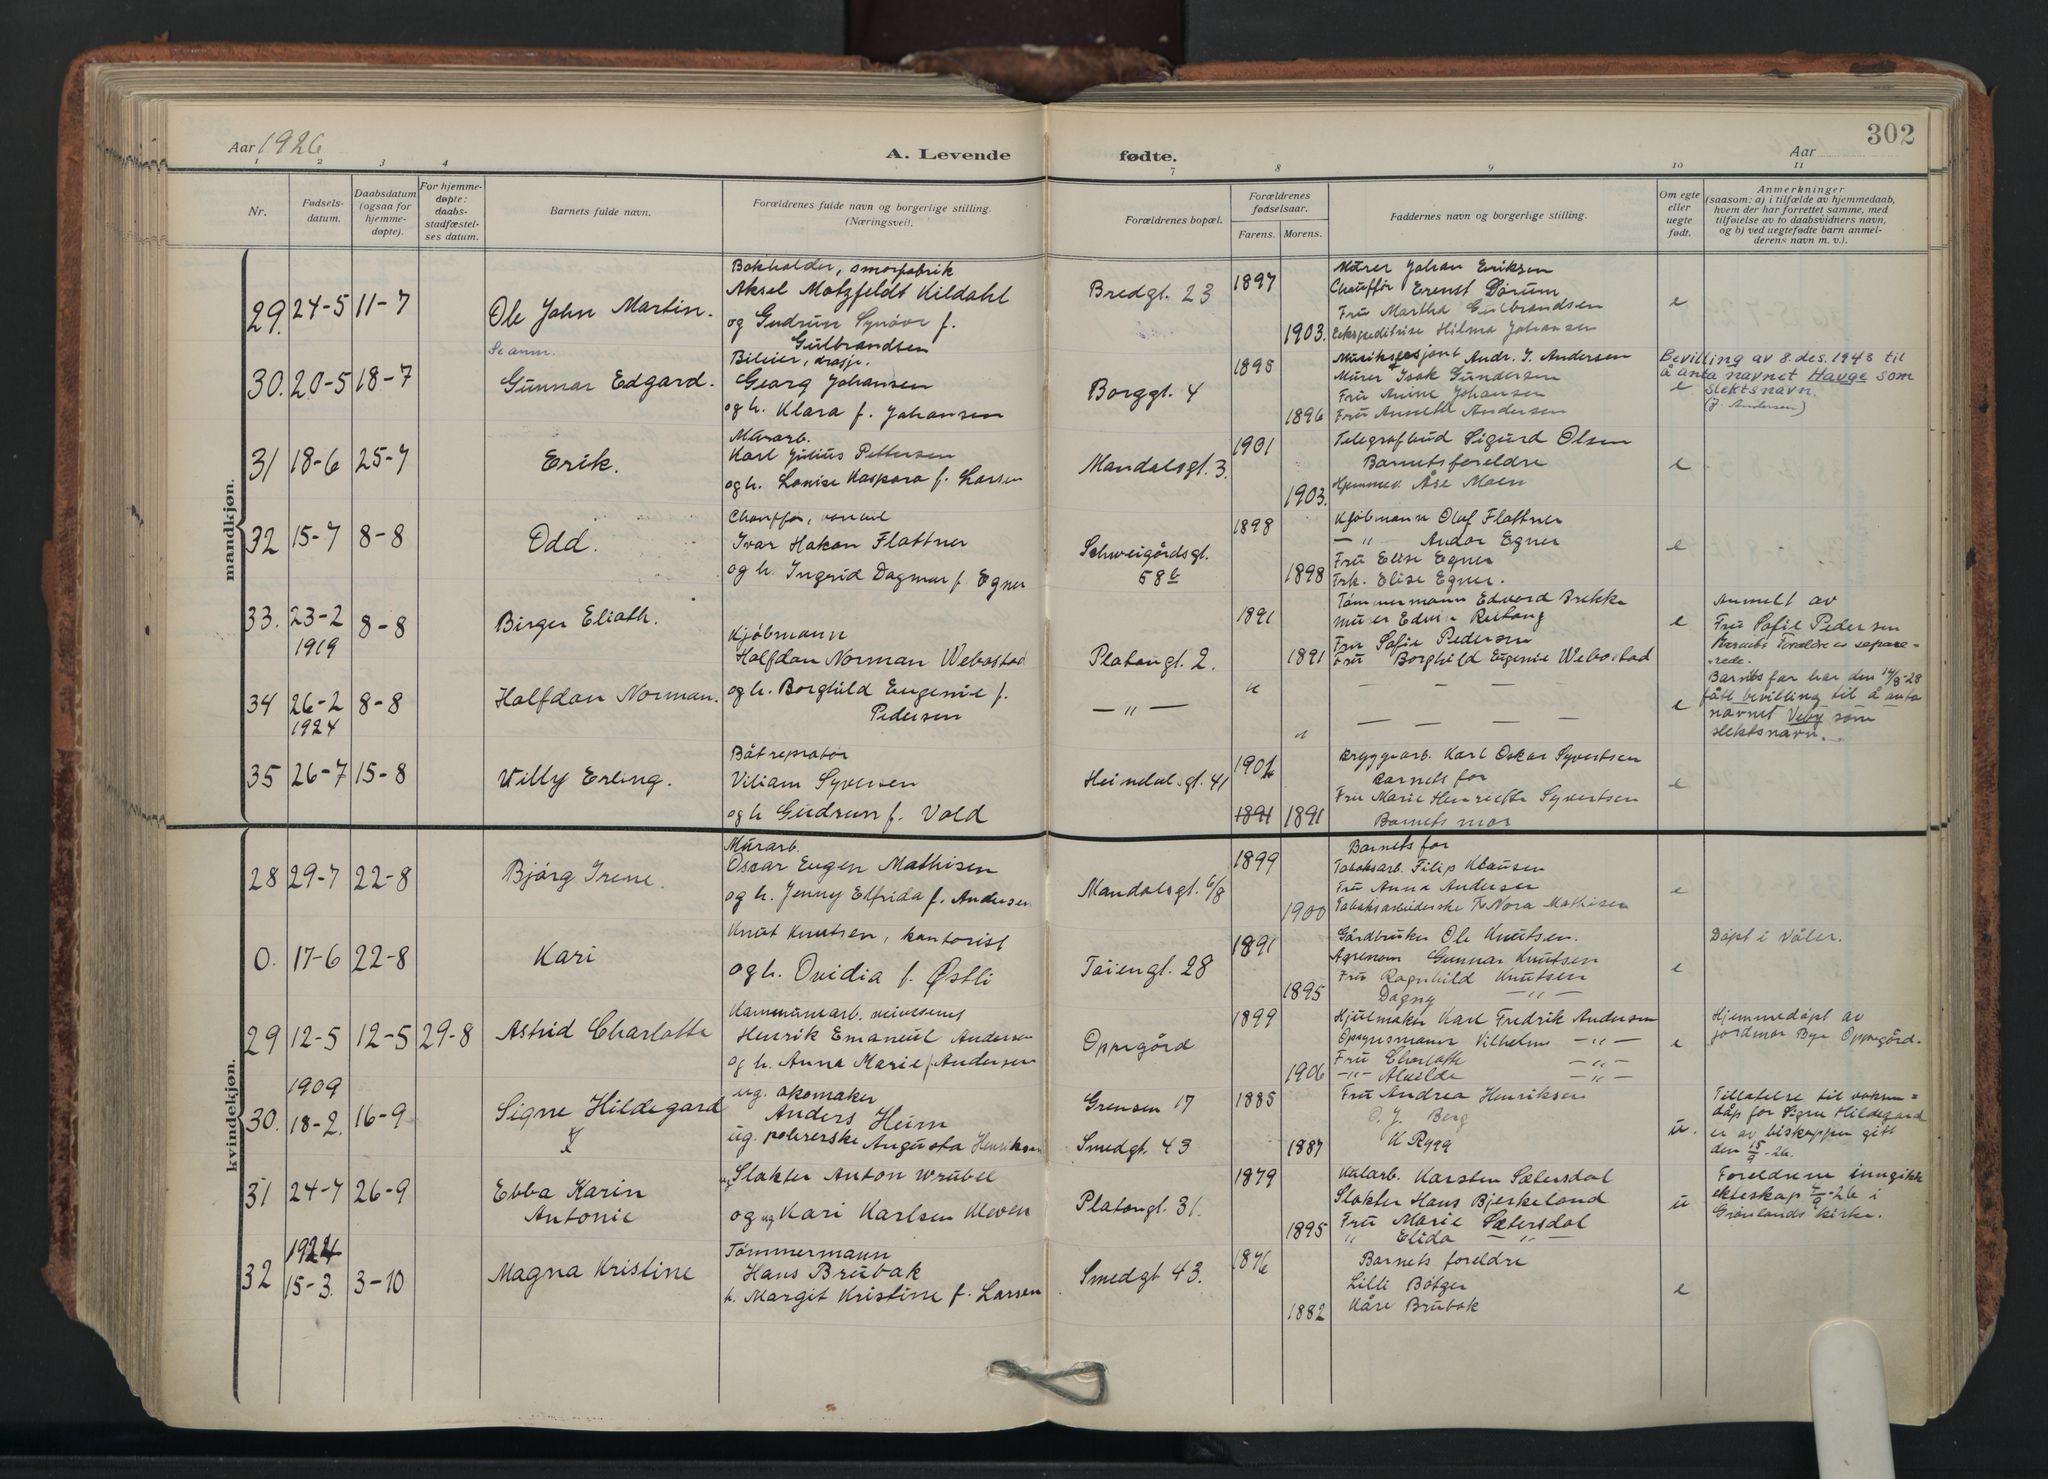 302
Aar 1926
A. Levende
fødte.
Aar
1 2 3 4 7 8 9 10 11
Nr.
Fødsels-
datum.
Daabsdatum
(ogsaa for
hjemme-
døpte).
For hjemme-
døpte:
daabs-
stadfæstel-
ses datum.
Barnets fulde navn.
Forældrenes fulde navn og borgerlige stilling.
(Næringsvei).
Forældrenes bopæl.
Forældrenes
fødselsaar.
Farens. Morens.
Faddernes navn og borgerlige stilling.
Om egte
eller
uegte
født.
Anmerkninger
(saasom: a) i tilfælde av hjemmedaab,
hvem der har forrettet samme, med
tilføielse av to daabsvidners navn,
og b) ved uegtefødte barn anmel-
derens navn m. v.).
mandkjøn.
29. 24-5 11-7 Ole John Martin.
Bokholder, smørfabrik
Aksel Motzfeldt Kildahl
og Gudrun Synöve f.
Gulbrandsen
Bredgt. 23 1897 1903.
Murer Johan Eriksen
Chauffør Ernst Dørum
Fru Martha Gulbrandsen
Ekspeditrise Hilma Johansen
e
Se anm.
30. 20-5 18-7 Gunnar Edgard.
Bileier, drosje.
Georg Johansen
og h. Klara f. Johansen
Borggt. 4 1895 1896
Andr. J. Andersen
Murer Isak Gundersen
Fru Anine Johansen
Fru Annette Andersen
e
Bevilling av 8. des. 1943 til
å anta navnet Hauge som
slektsnavn.
(J. Andersen)
31 18-6 25-7 Erik.
Murarb.
Karl Julius Pettersen
og h. Lovise Kaspara f. Larsen
Mandalsgt. 3. 1901 1903.
Telegrafbud Sigurd Olsen
Barnets foreldre
Hjemmev. Åse Moen
e
32 15-7 8-8 Odd.
Ivar Hakon Flattner
og h. Ingrid Dagmar f. Egner
Schweigårdsgt.
58 b
1898 1898
Kjøbmann Olaf Flattner
— " Andor Egner
Fru Elise Egner
Frk. Elise Egner.
e
33. 23-2
1919
8-8 Birger Eliath.
Kjøbmann
Halfdan Norman Webostad
og h. Borghild Eugenie f.
Pedersen
Platougt. 2. 1891 1891
Tømmermann Edvard Brekke
Fru Sofie Pedersen
Fru Borghild Eugenie Webostad
e
Anmelt av
Fru Sofie Pedersen
Barnets Forældre er separe-
rede.
34 26-2
1924
8-8 Halfdan Norman.
— " — " "
— — — — —
— — — — —
e
Barnets far har den 14/8-28
fått bevilling til å anta
navnet Veby som
slektsnavn.
35 26-7 15-8 Willy Erling.
Båtreparatør
Viliam Syversen
og h Gudrun f. Vold
Heimdalsgt. 41 1902 1891 1891
Bryggearb. Karl Oskar Syvertsen
Barnets far
Fru Marie Henriette Syvertsen
Barnets mor
e
kvindekjøn.
28 29-7 22-8 Bjørg Irene.
Murarb.
Oscar Eugen Mathisen
og h. Jenny Elfrida f. Andersen
Mandalsgt. 6/8 1899 1900
Barnets far
Tobaksarb. Filip Klausen
Fru Anna Andersen
Tobaksarbeiderske Nora Mathisen
e
0. 17-6 22-8 Kari
Knut Knutsen, kontorist
og h. Ovidia f. Østli
Tøiengt. 28 1891 1895
Gårdbruker Ole Knutsen.
Agronom Gunnar Knutsen
Fru Ragnhild Knutsen
Dagny — " —
e
Døpt i Våler.
29 12-5 12-5 29-8 Astrid Charlotte
Kommunearb. veivesenet
Henrik Emanuel Andersen
og h. Anna Marie f Andersen
Oppegård 1899 1906
Hjulmaker Karl Fredrik Andersen
Opsynsmann Vilhelm — " —
Fru Charlotte — " —
— " — Alvilde — " —
e
Hjemmedøpt av
jordmor Bye Oppegård.
30. 1909
18-2. 16-9 Signe Hildegard
ug. skomaker
Anders Heim
ug. polererske Augusta Henriksen
Grensen 17
Smedgt. 43
1885 1887
Fru Andrea Henriksen
O. J. Berg
K Rygg
u.
Tillatelse til voksen=
dåp for Signe Hildegard
er av biskoppen gitt
den 15/9-26.
31 24-7 26-9 Ebba Karin
Antonie
ug Slakter Anton Wrubel
og ug Kari Karlsen Kleven
Platougt. 31. 1879 1895
Kularb. Karsten Sætersdal
Slakter Hans Bjerkeland
Fru Marie Sætersdal
" Elida — " —
u
Foreldrene inngikk
ekteskap 4/9-26 i
Grønlands kirke.
32 1924
15-3. 3-10 Magna Kristine
Tømmermann
Hans Brubak
h. Margit Kristine f. Larsen
Smedgt. 43. 1876 1882
Barnets foreldre
Lilli Bøtger
Kåre Brubak
e